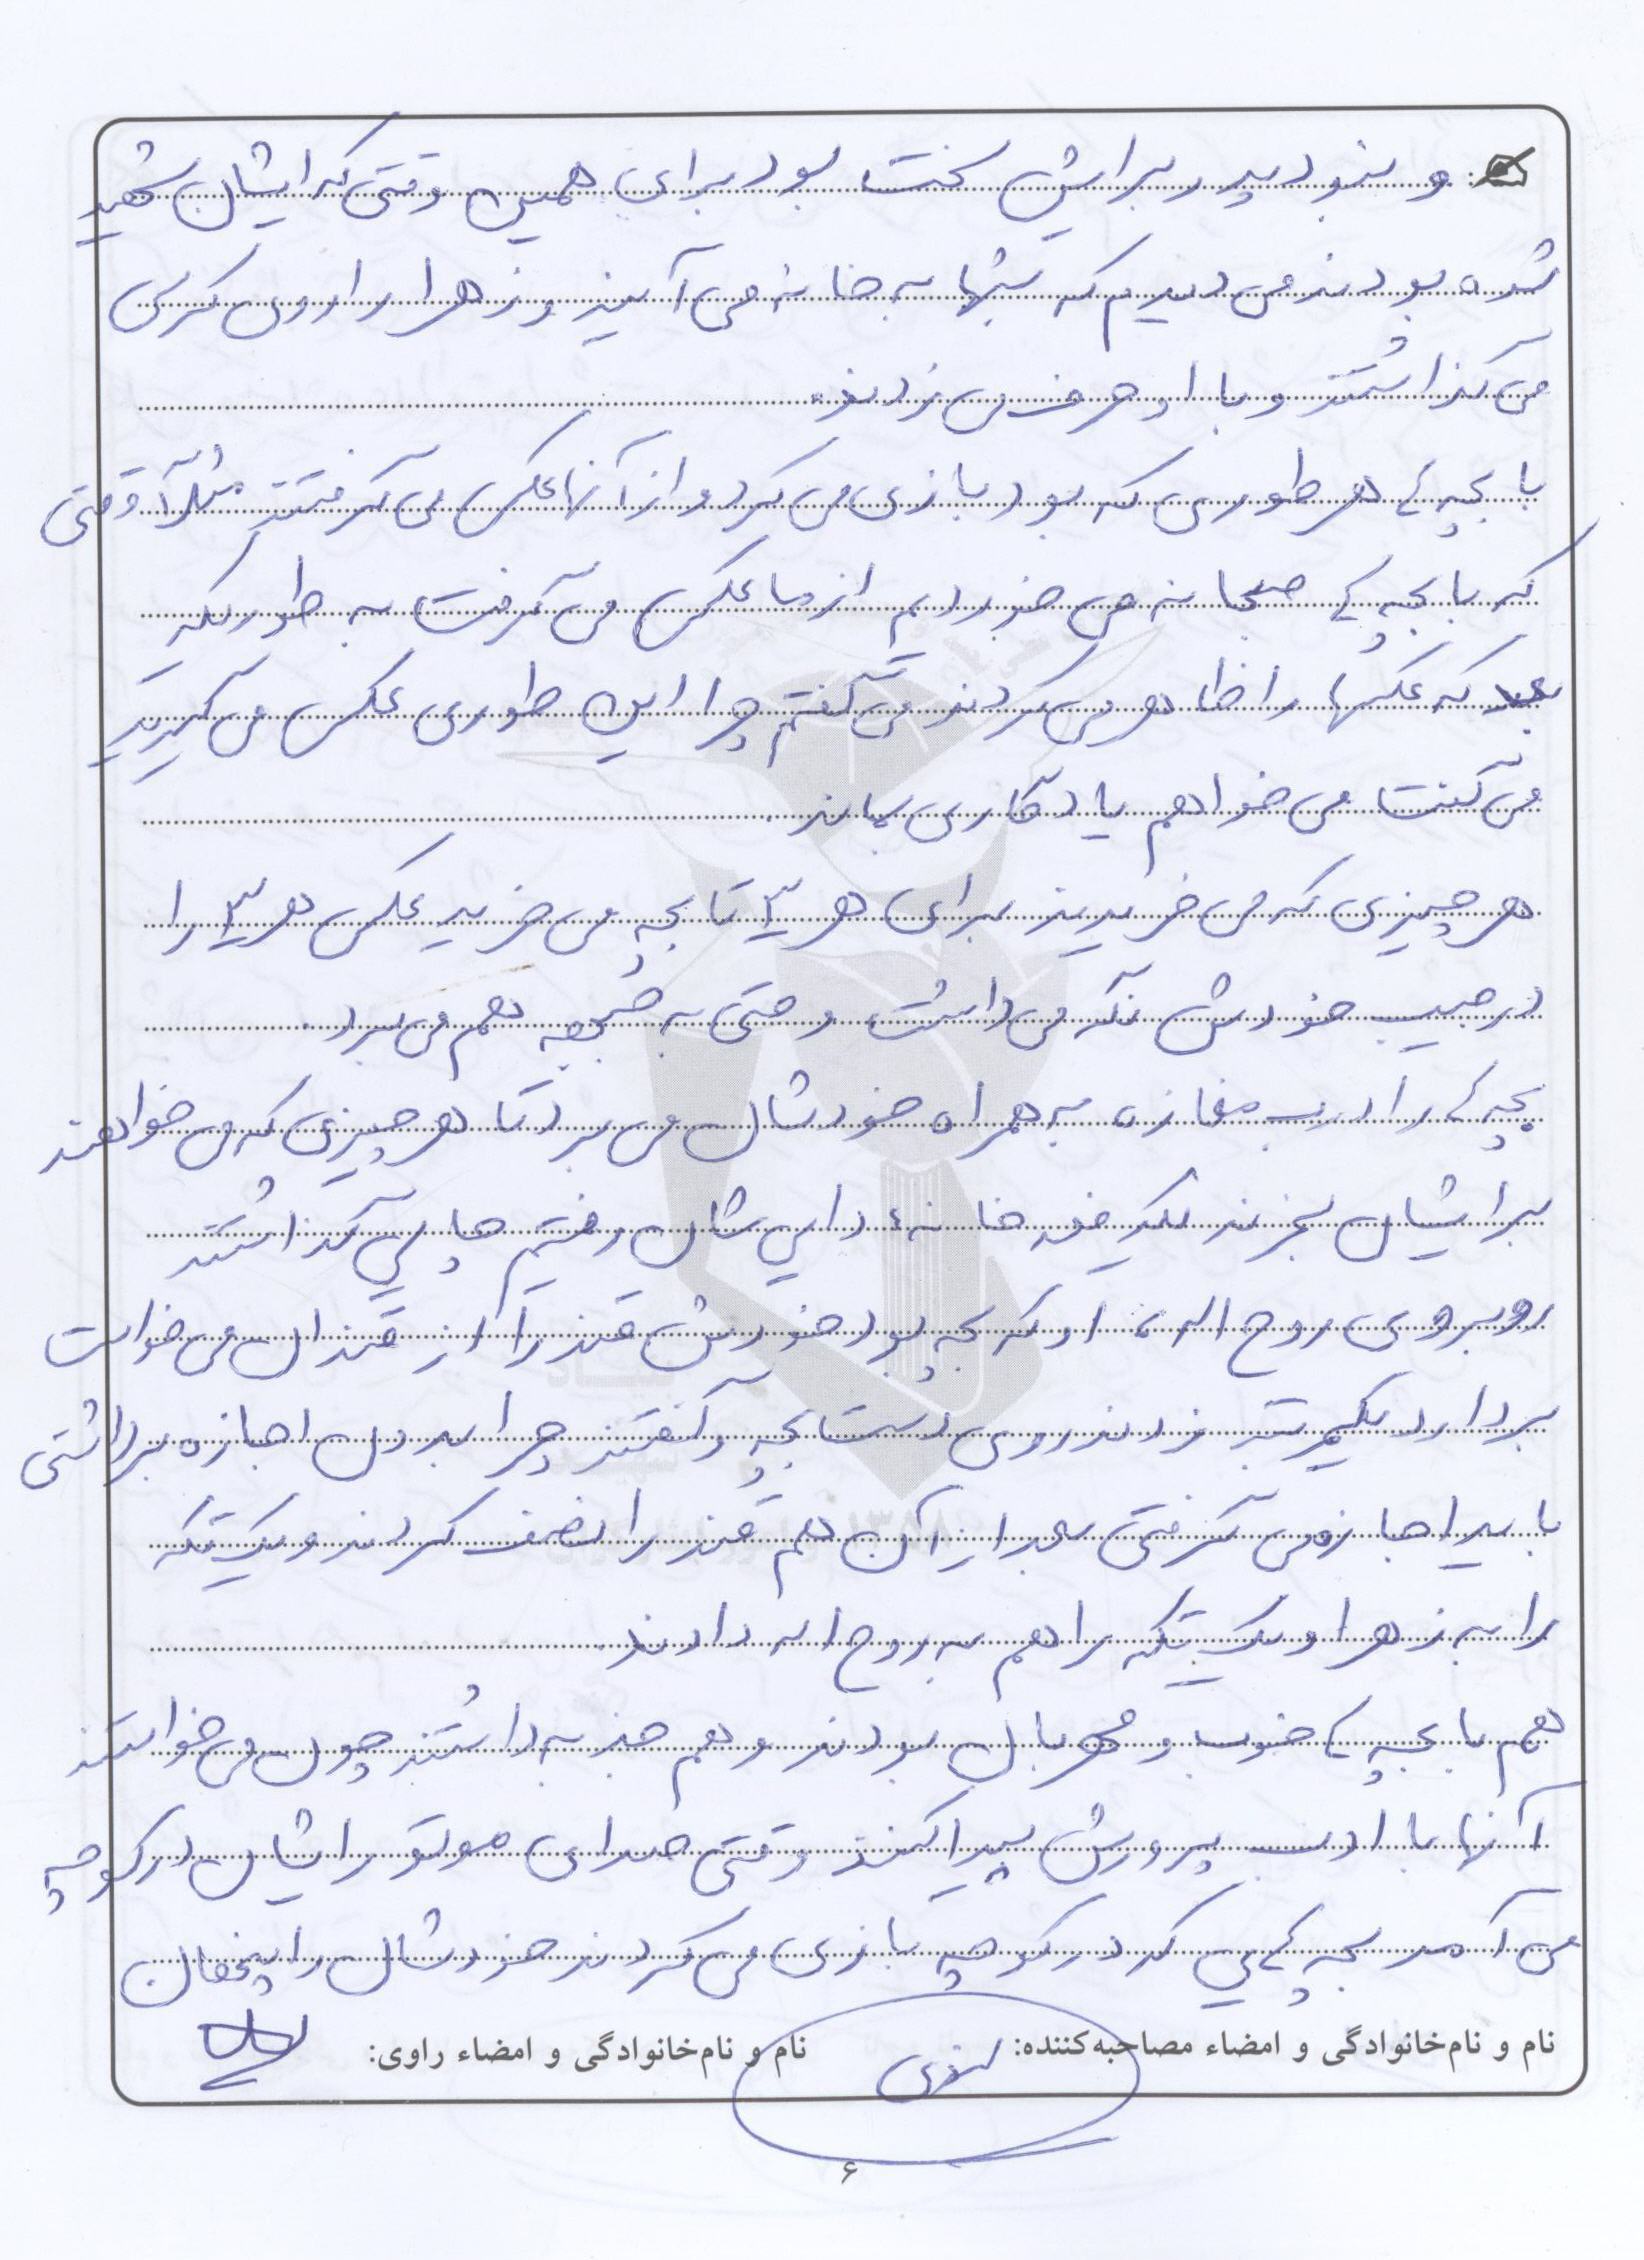 و نبود پدر برایش سخت بود برای همین وقتی که ایشان شهید
شده بودند می دیدم که شبها به خانه می آیند و زهرا را روی کرسی
می گذاشتند و با او حرف می زدند.
با بچه ها هر طوری که بود بازی می کرد و از آنها عکس می گرفتند مثلاً وقتی
که با بچه ها صبحانه می خوردیم از ما عکس می گرفت به طوریکه
بعد که عکسها را ظاهر می کردند می گفتم چرا این طوری عکس می گیرید
می گفت می خواهم یادگاری بماند.
هر چیزی که می خریدند برای هر ۳ تا بچه می خرید عکس هر ۳ را
در جیب خودش نگه می داشت و حتی به جبهه هم می برد.
بچه ها را درب مغازه به همراه خودشان می برد تا هر چیزی که می خواهند
برایشان بخرند یکدفعه خانه دایی شان رفتیم چایی گذاشتند
روبروی روح اله، او که بچه بود خودش قند را از قندان می خواست
بردارد یکمرتبه زدند روی دست بچه و گفتند چرا بدون اجازه برداشتی
باید اجازه می گرفتی بعد از آن هم قند را نصف کردند و یک تکه
را به زهرا و یک تکه را هم به روح اله دادند.
هم با بچه ها خوب و مهربان بودند و هم جذبه داشتند چون می خواستند
آنها با ادب پرورش پیدا کنند وقتی صدای موتور ایشان در کوچه
می آمد بچه هایی که در کوچه بازی می کردند خودشان را پنهان
نام و نام‌خانوادگی و امضاء مصاحبه‌کننده: نام و نام‌خانوادگی و امضاء راوی:
۶